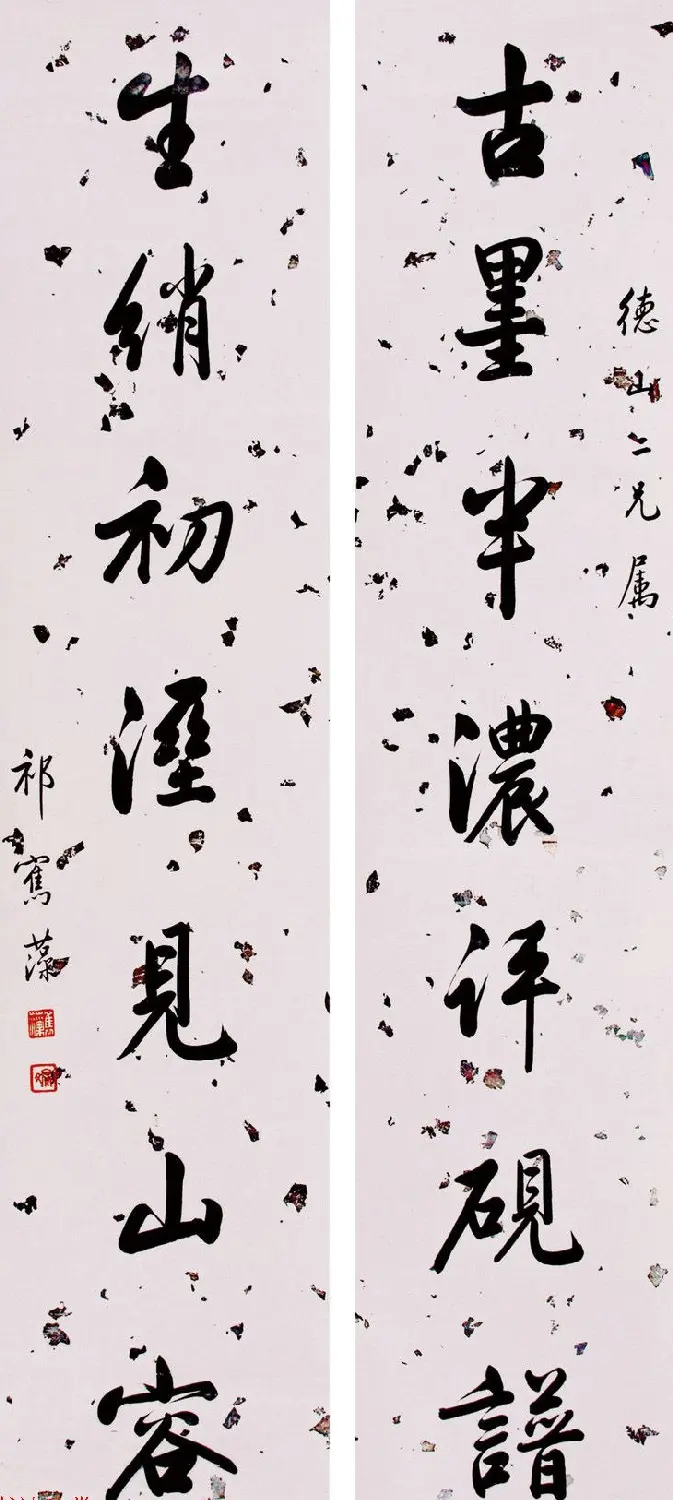 德山仁兄属
古墨半濃評硯譜
生綃初溼見山容
祁寯藻